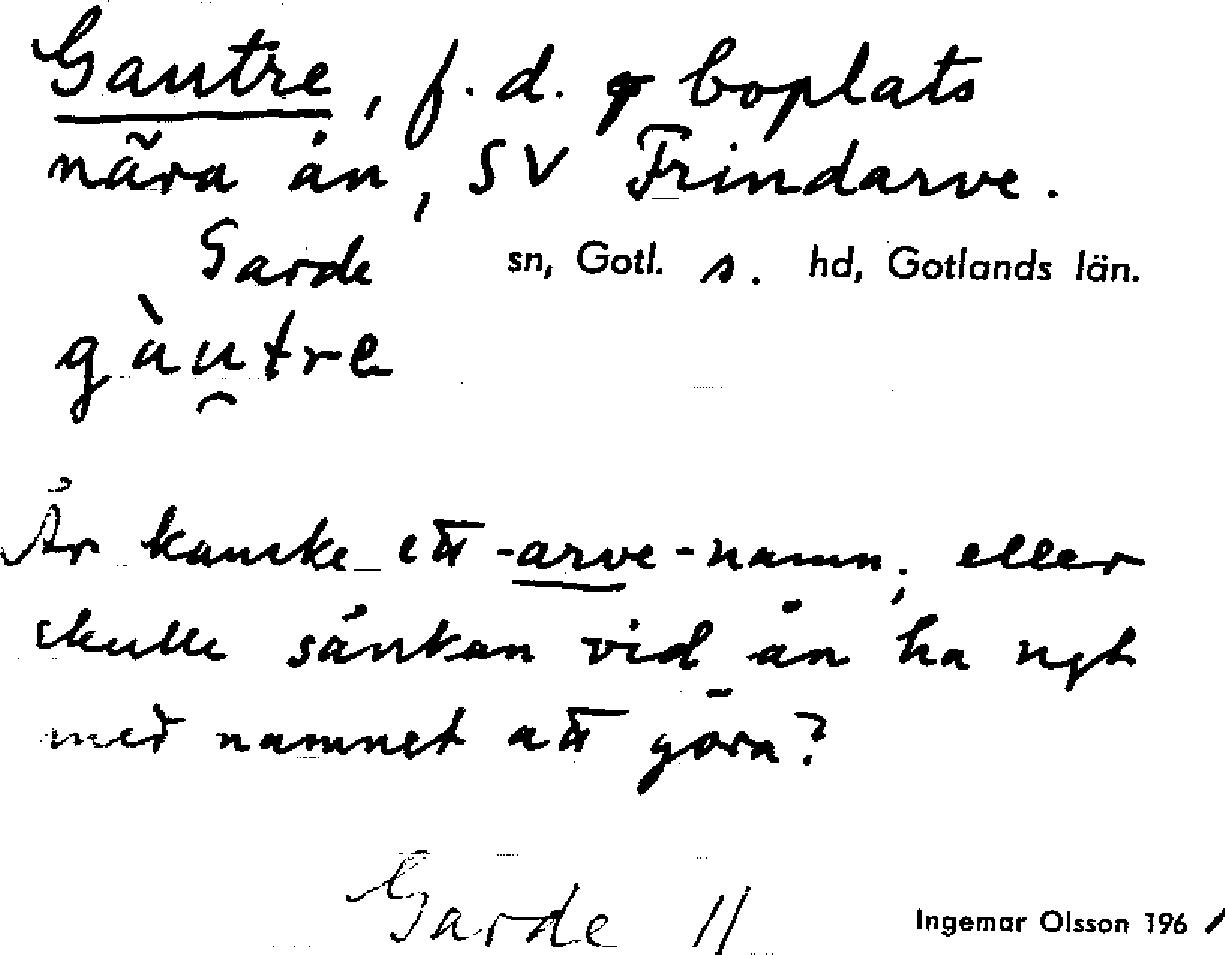 Gautre, f.d. boplats
nära ån, SV Frindarve.
Garde sn, Gotl. s. hd, Gotlands län.
gàu̯tre
Är kanske ett -arve-namn, eller
skulle sänkan vid ån ha ngt
med namnet att göra?
Garde 11 Ingemar Olsson 1961